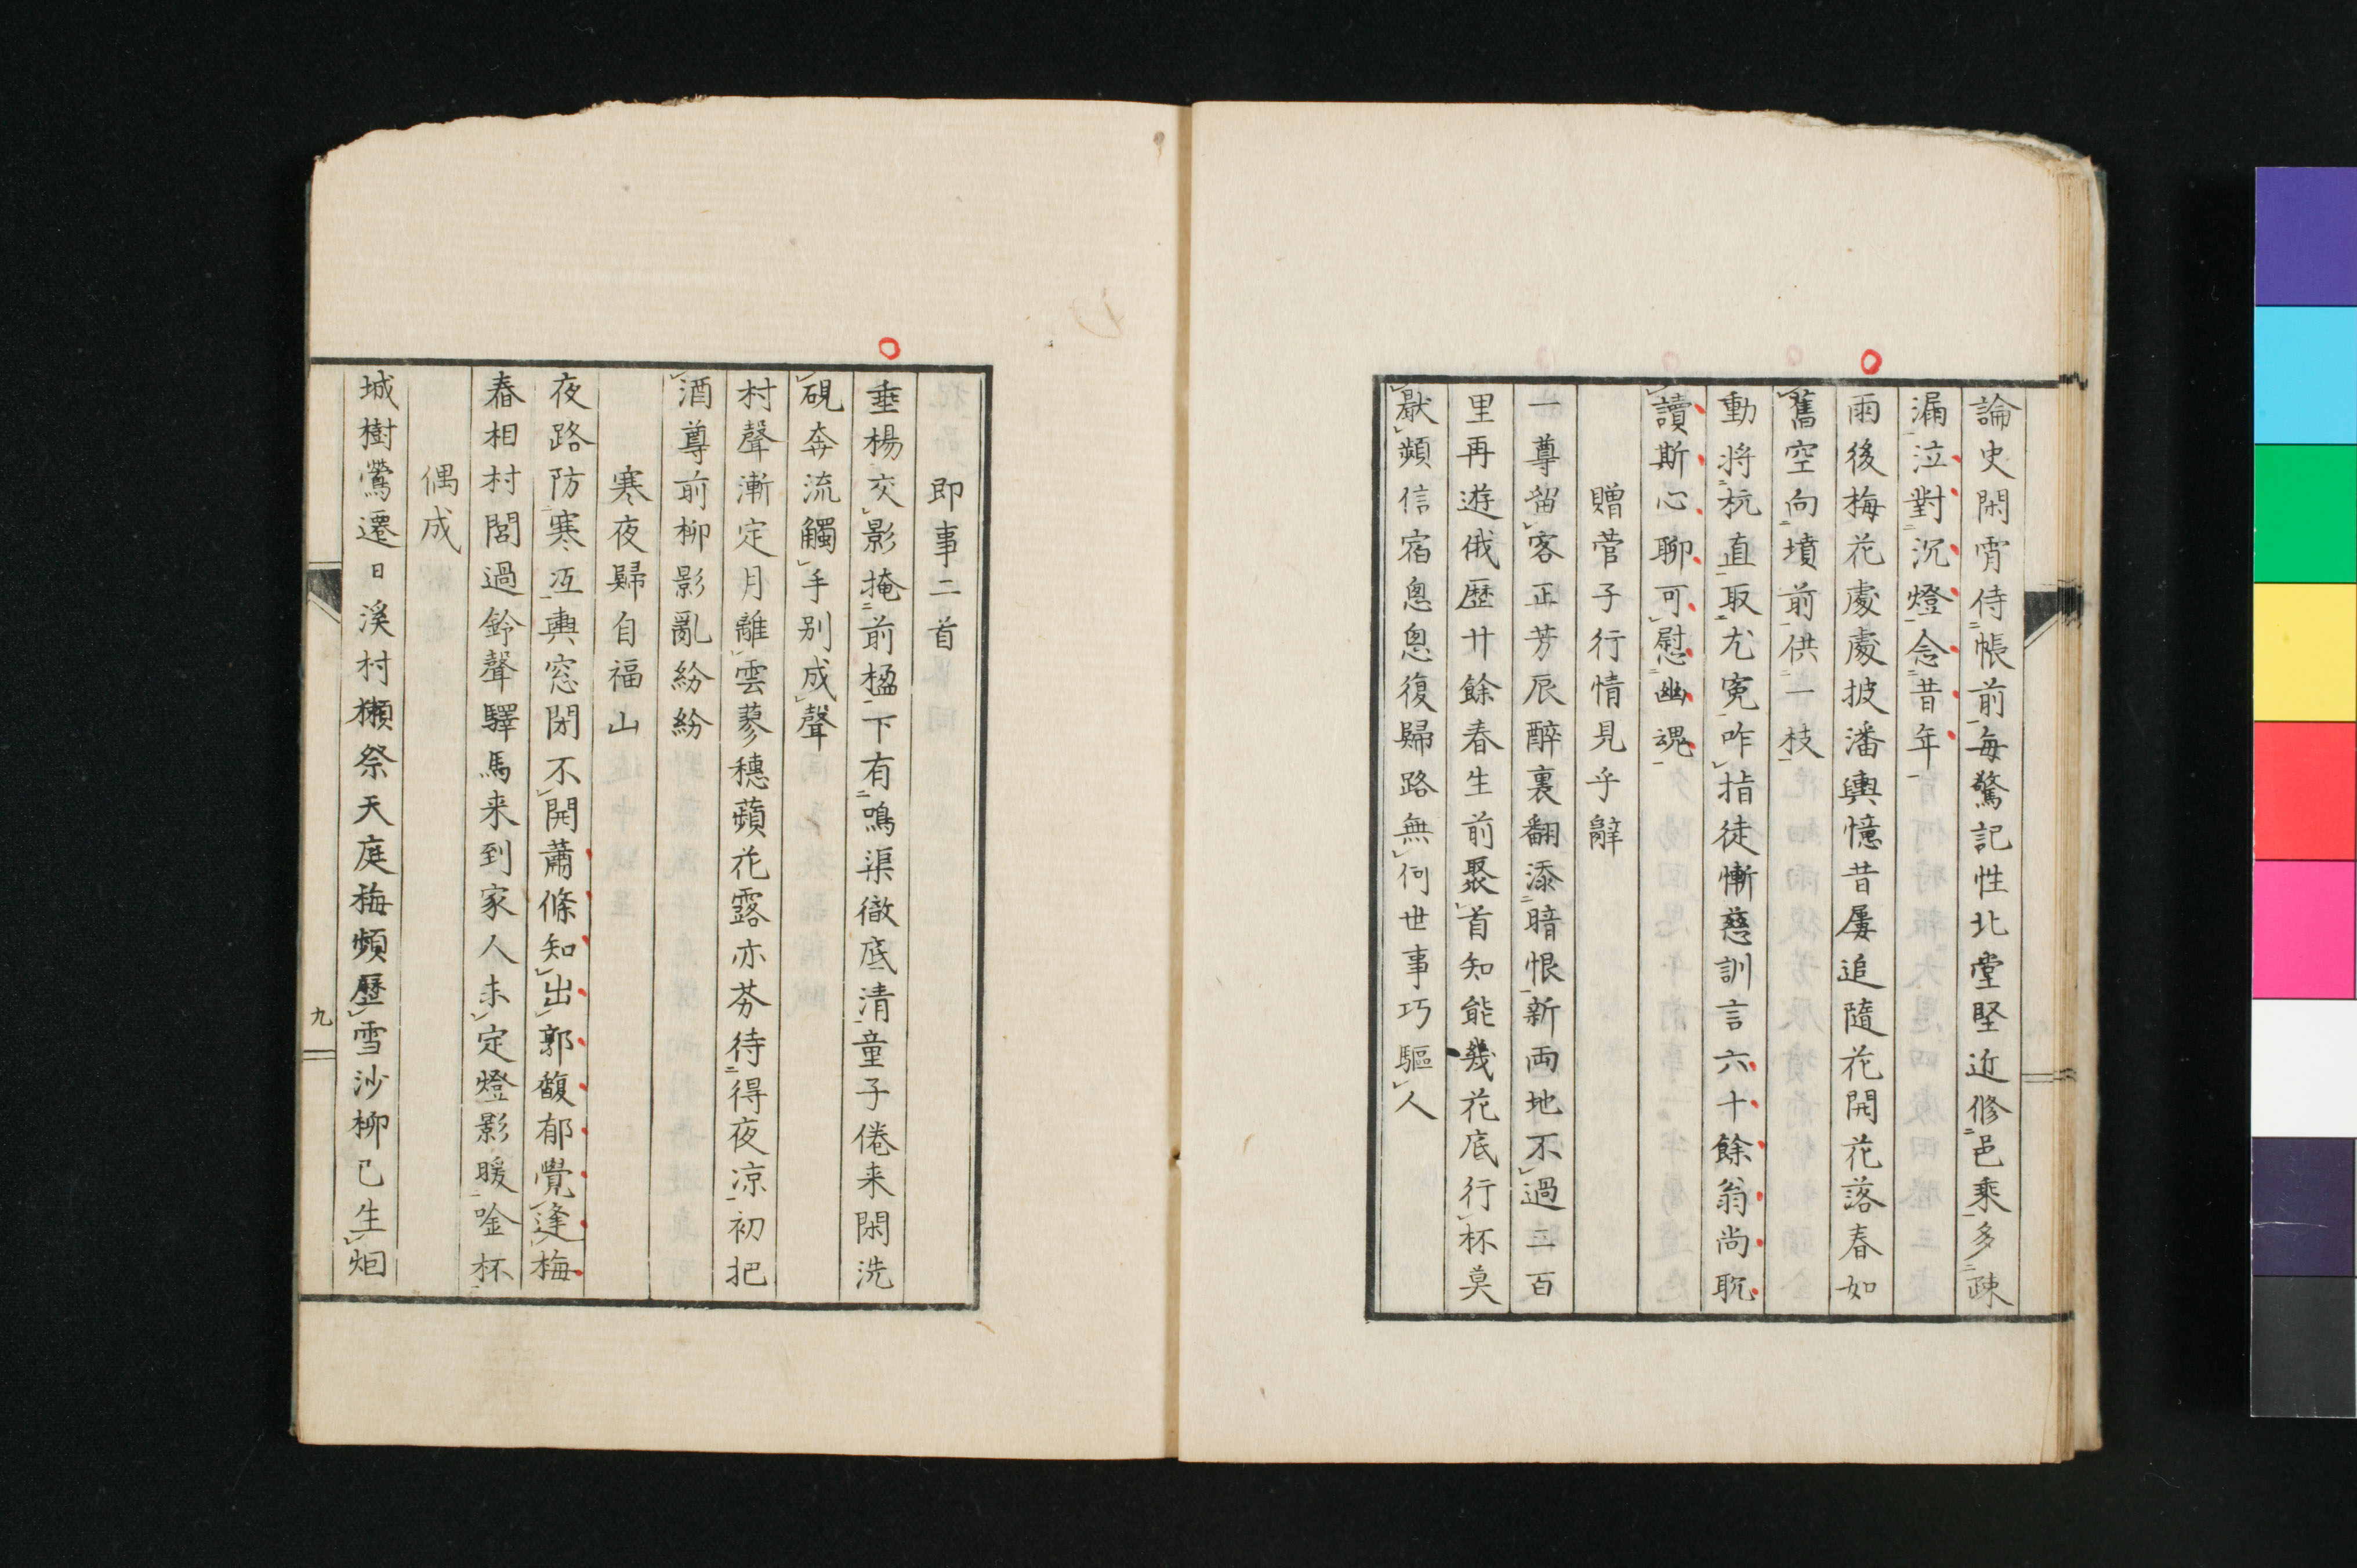 論史閑宵侍帳前每驚記性北堂堅近修邑乘多疎
漏泣對沉燈念昔年
雨後梅花處處披潘輿憶昔屢追隨花開花落春如
舊空向墳前供一枝
動將枕直取尤寃咋指徒慚慈訓言六十餘翁尚耽
讀斯心聊可慰幽魂
贈菅子行情見乎辭
一尊留客正芳辰醉裏翻添暗恨新両地不過三百
里再遊俄歷廿餘春生前聚首知能幾花底行杯莫
厭頻信宿悤悤復歸路無何世事巧驅人
即事二首
垂楊交影掩前楹下有鳴渠徹底清童子倦来閑洗
硯奔流觸手別成聲
村聲漸定月離雲蓼穗蘋花露亦芬待得夜凉初把
酒尊前柳影亂紛紛
寒夜歸自福山
夜路防寒冱輿窓閉不開蕭條知出郭馥郁覺逢梅
舂相村閭過鈴聲驛馬来到家人未定燈影暖唫杯
偶成
城樹鶯遷日溪村獺祭天庭梅頻歷雪沙柳已生烟
九